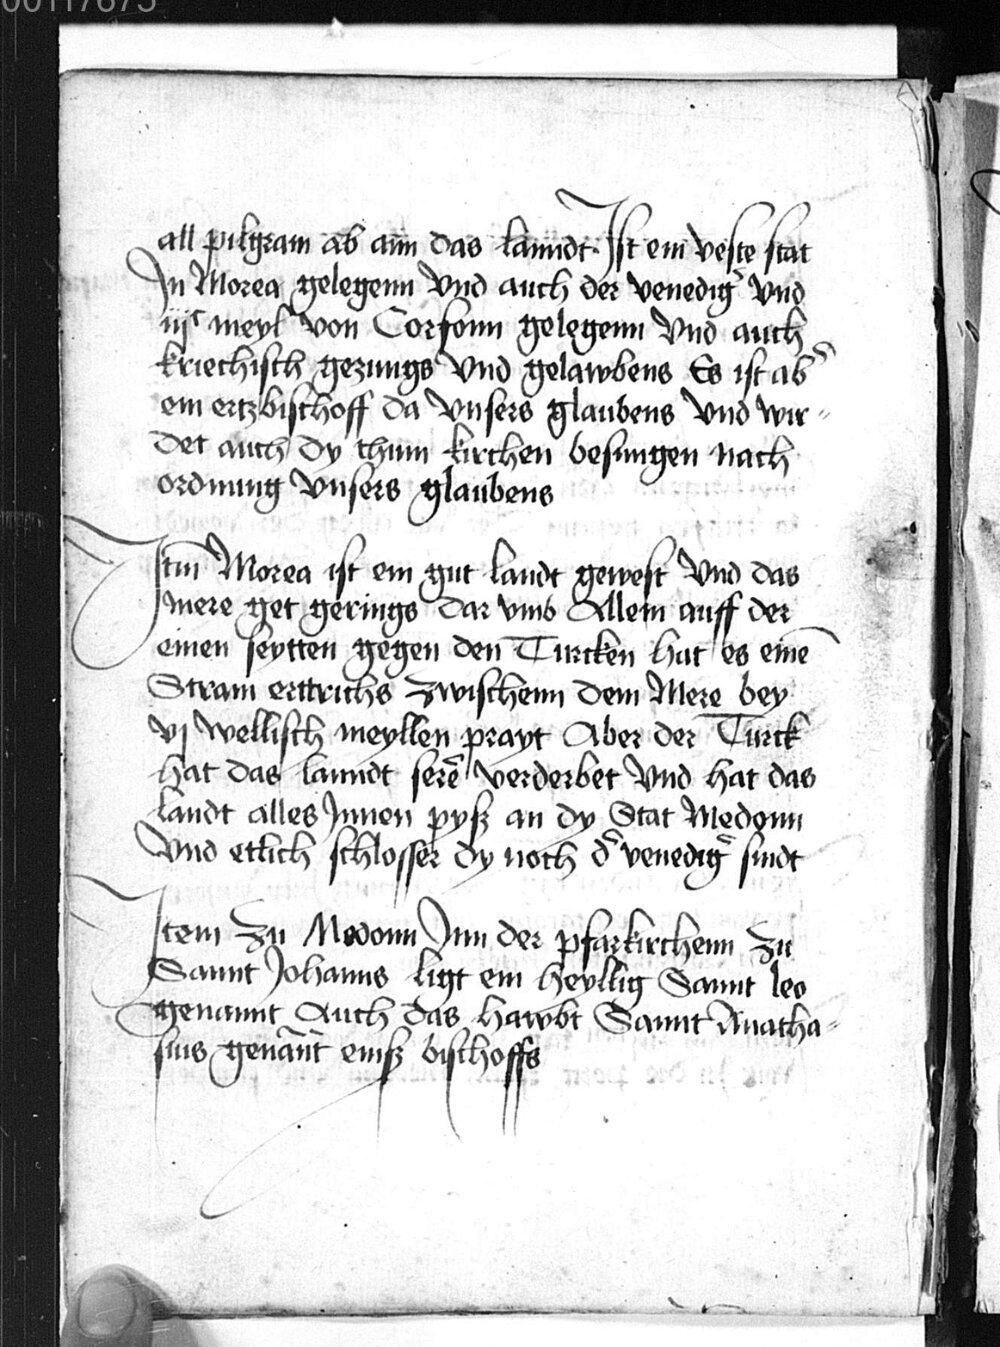 00117675
all pilgram ab ann das lanndt. Ist ein veste stat
In Morea gelegenn vnd auch der venedig̉ vnd
iijᶜ meyl von Corfonn gelegenn vnd auch
kriechisch gezungs vnd gelawbens Es ist ab̉
ein ertzbischoff da vnsers glaubens vnd wir-
det auch dy thum kirchen besungen nach
ordnung vnsers glaubens
Itm̄ Morea ist ein gut landt gewest vnd das
mere get gerings dar vmb Allein auff der
einen seytten gegen den Turcken hat es einē
Stram erttrichs zwischenn dem Mere bey
vj wellisch meyllen prayt Aber der Turck
hat das lanndt serē verderbet vnd hat das
landt alles Innen pyß an dy Stat Modonn
vnd etlich schlosser dy noch d̉ venedig̉ sindt
Item zu Modonn Inn der pfarkirchenn zu
Sannt Johanns ligt ein heyllig Sannt leo
genannt Auch das hawbt Sannt Anatha-
sius gena̅nt einß bischoffs